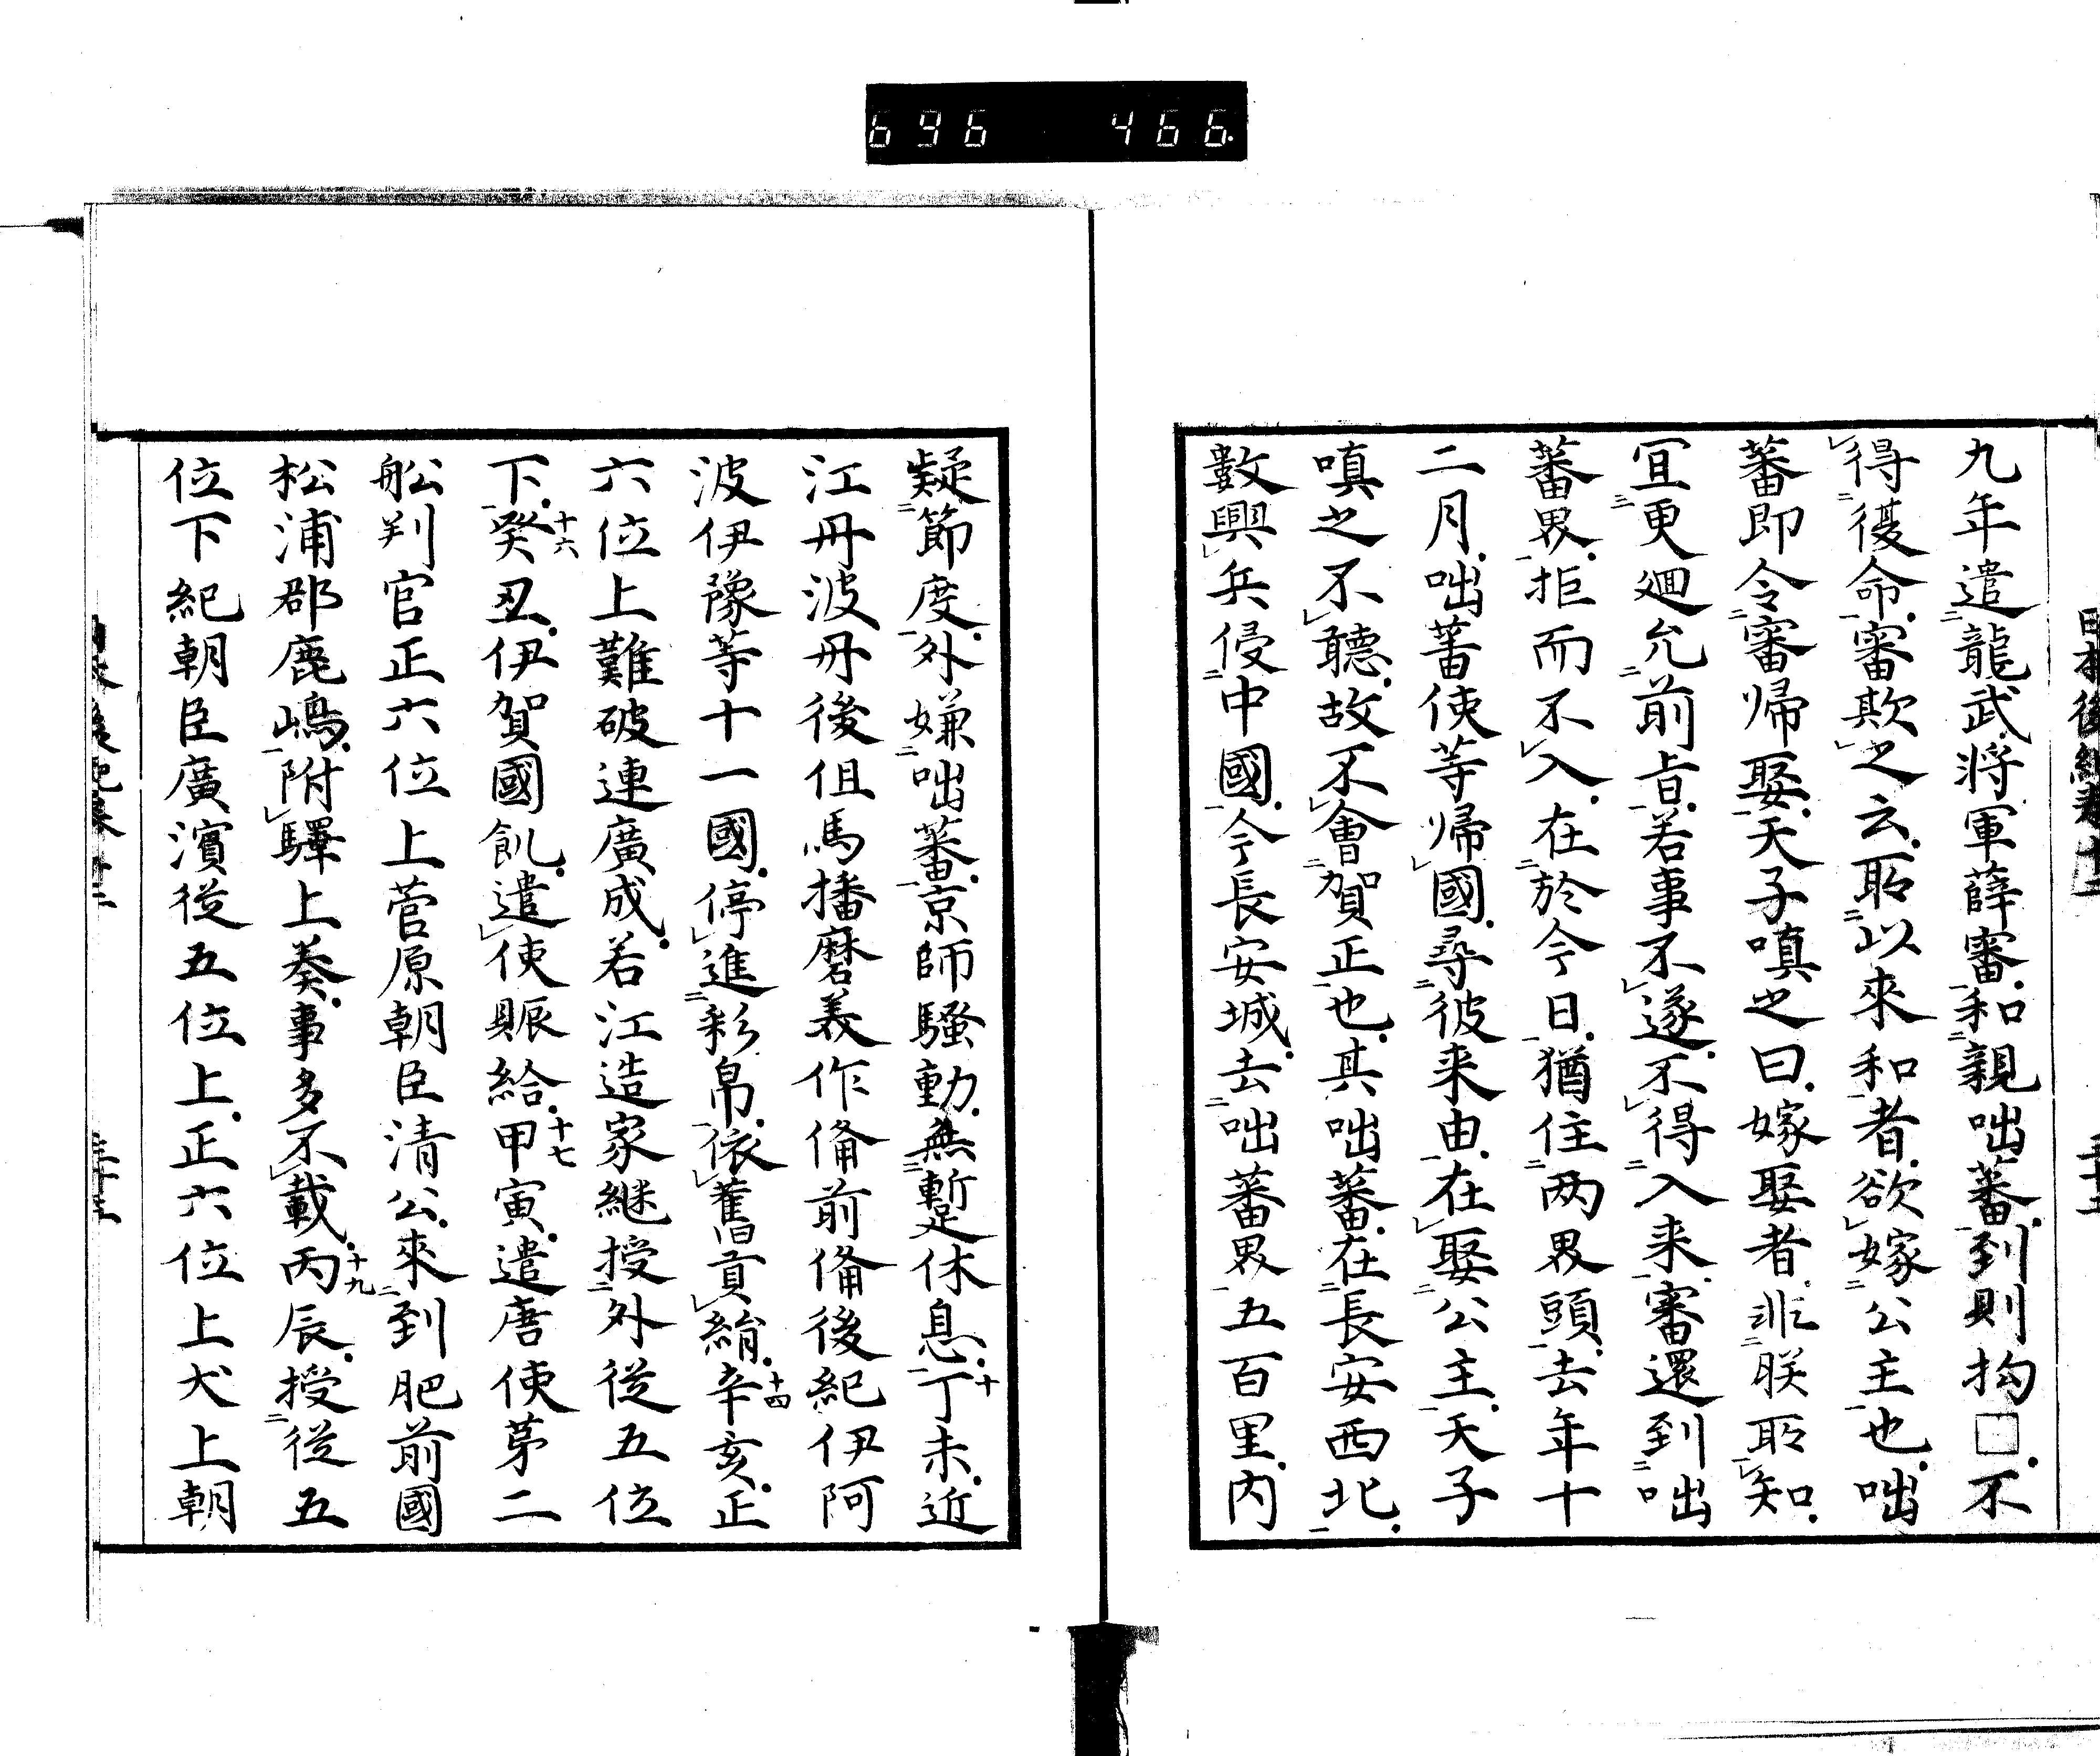 696 466
九年遣龍武将軍薛審和親咄蕃到則拘□不
得復命審欺之云所以來和者欲嫁公主也咄
蕃即令審帰娶天子嗔之曰嫁娶者非朕所知
冝更廻允前旨若事不遂不得入来審還到咄
蕃界拒而不入在於今日猶住两界頭去年十
二月咄蕃使等帰國尋彼来由在娶公主天子
嗔之不聴故不會賀正也其咄蕃在長安西北
數興兵侵中國今長安城去咄蕃界五百里内
疑節度外嫌咄蕃京師騒動無暫休息丁未近
十
江丹波丹後但馬播磨美作備前備後紀伊阿
波伊豫等十一國停進彩帛依舊貢絹辛亥正
十四
六位上難破連廣成若江造家継授外従五位
下癸丑伊賀國飢遣使賑給甲寅遣唐使第二
十六
十七
舩判官正六位上菅原朝臣清公來到肥前國
松浦郡鹿嶋附驛上奏事多不載丙辰授従五
十九
位下紀朝臣廣濱従五位上正六位上犬上朝